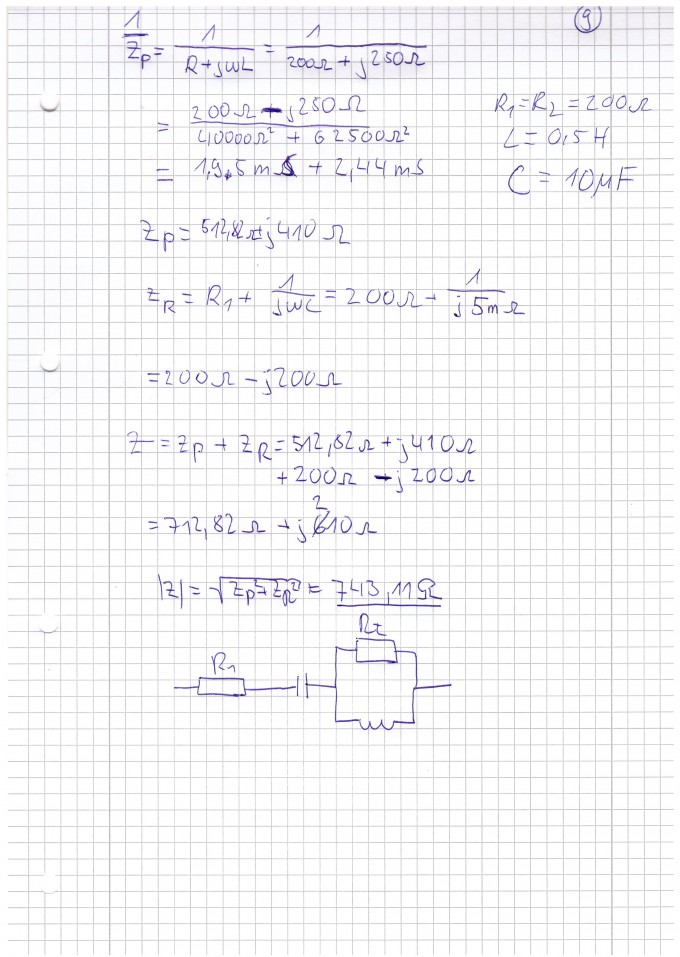 9
1/Zp = 1/(R+jωL) = 1/(200Ω + j250Ω)
= (200Ω - j250Ω)/(40000Ω² + 62500Ω²)
R1=R2=200Ω
L=0,5H
= 1,95mS + 2,44mS
C = 10μF
Zp = 512,82Ω+j410Ω
ZR = R1 + 1/(jωC) = 200Ω + 1/(j5mΩ)
=200Ω -j200Ω
Z = Zp + ZR = 512,82Ω +j410Ω
+200Ω -j200Ω
=712,82Ω +j210Ω
|Z| = √(Zp²+ZR²) = 743,11Ω
R2
R1